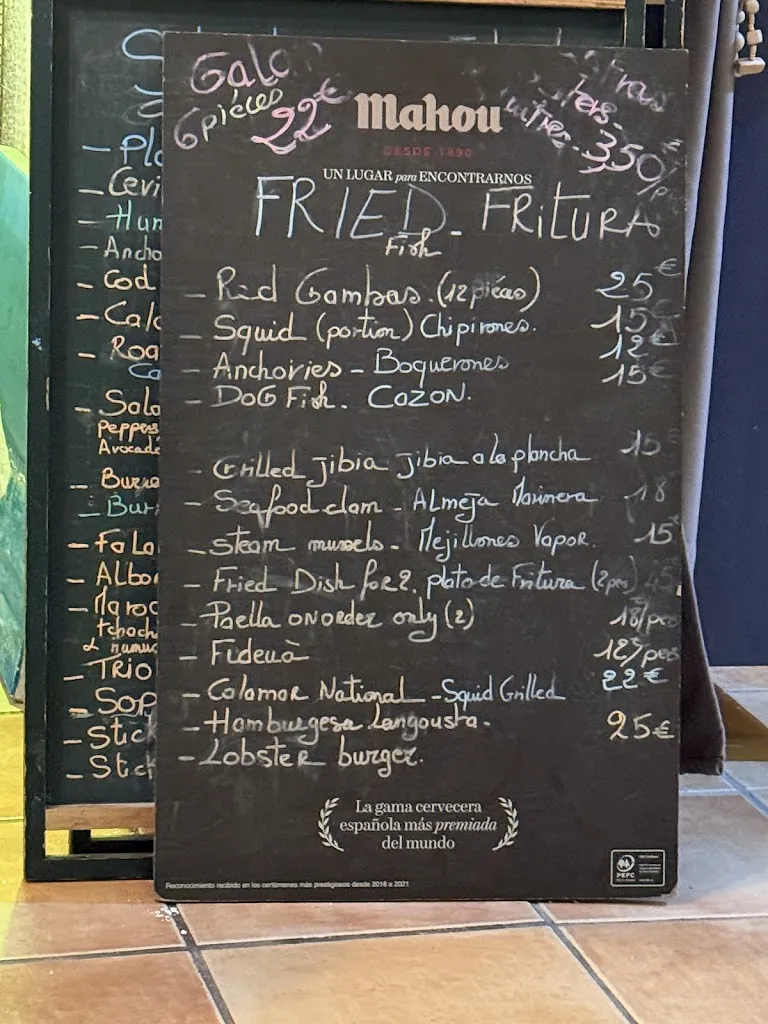 6 pièces
22€
350/
Mahou
DESDE 1890
UN LUGAR para ENCONTRARNOS
FRIED - FRITURA
Fish
- Red Gambas. (12 pièces) 25€
- Squid (portion) Chipirones. 15€
- Anchovies - Boquerones 12€
- DOG Fish. CAZON. 15€
- Grilled jibia jibia a la plancha 15€
- Seafood clam - Almeja Marinera 18
- steam mussels - Mejillones Vapor. 15€
- Fried Dish for 2. plato de Fritura (2pes) 45€
- Paella on order only (2) 18/pes
- Fideuà 12/pes
- Calamar National - Squid Grilled 22€
- Hamburgesa Langousta - 25€
- Lobster burger.
La gama cervecera
española más premiada
del mundo
PEFC
Reconocimiento recibido en los certámenes más prestigiosos desde 2018 a 2021
- Cevi
- Hum
- Ancho
- Cod
- Cala
- Roa
- Sala
Peppers
Avocado
- Burra
- Bur
- Fala
- Albo
- Maroc
- TRIO
- SOP
- Stick
- Stick